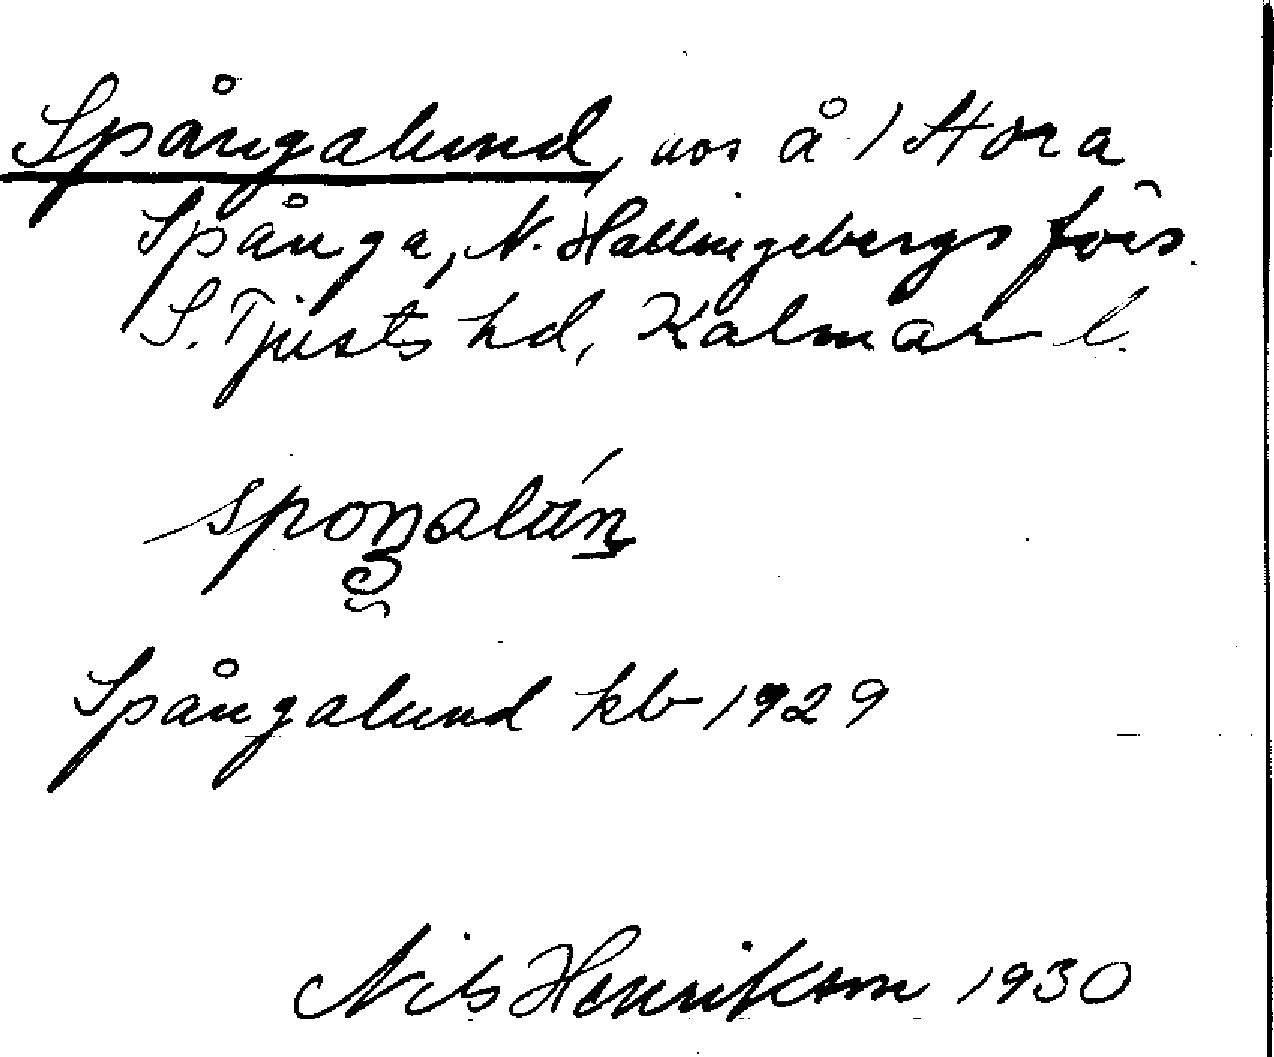 Spångalund, vos å 1 Stora
Spånga, N. Hallingebergs förs.
S. Tjusts hd, Kalmar l.
Spångalund kb 1929
Nils Henrikson 1930